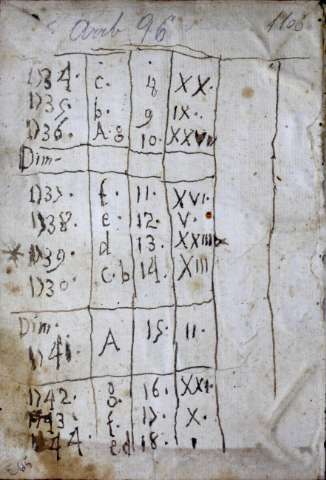 Arab 96
1734. c. 8 XX.
1735. b. 9 IX.
1736. A.g 10. XXVIII
Dim.
1737. f. 11. XVI.
1738. e. 12. V.
1739. d 13. XXIII
1730 c.b 14. XIII
Dim.
1741. A 15. II.
1742. g. 16. XXI.
1743 f. 17. X.
1744. e.d 18.